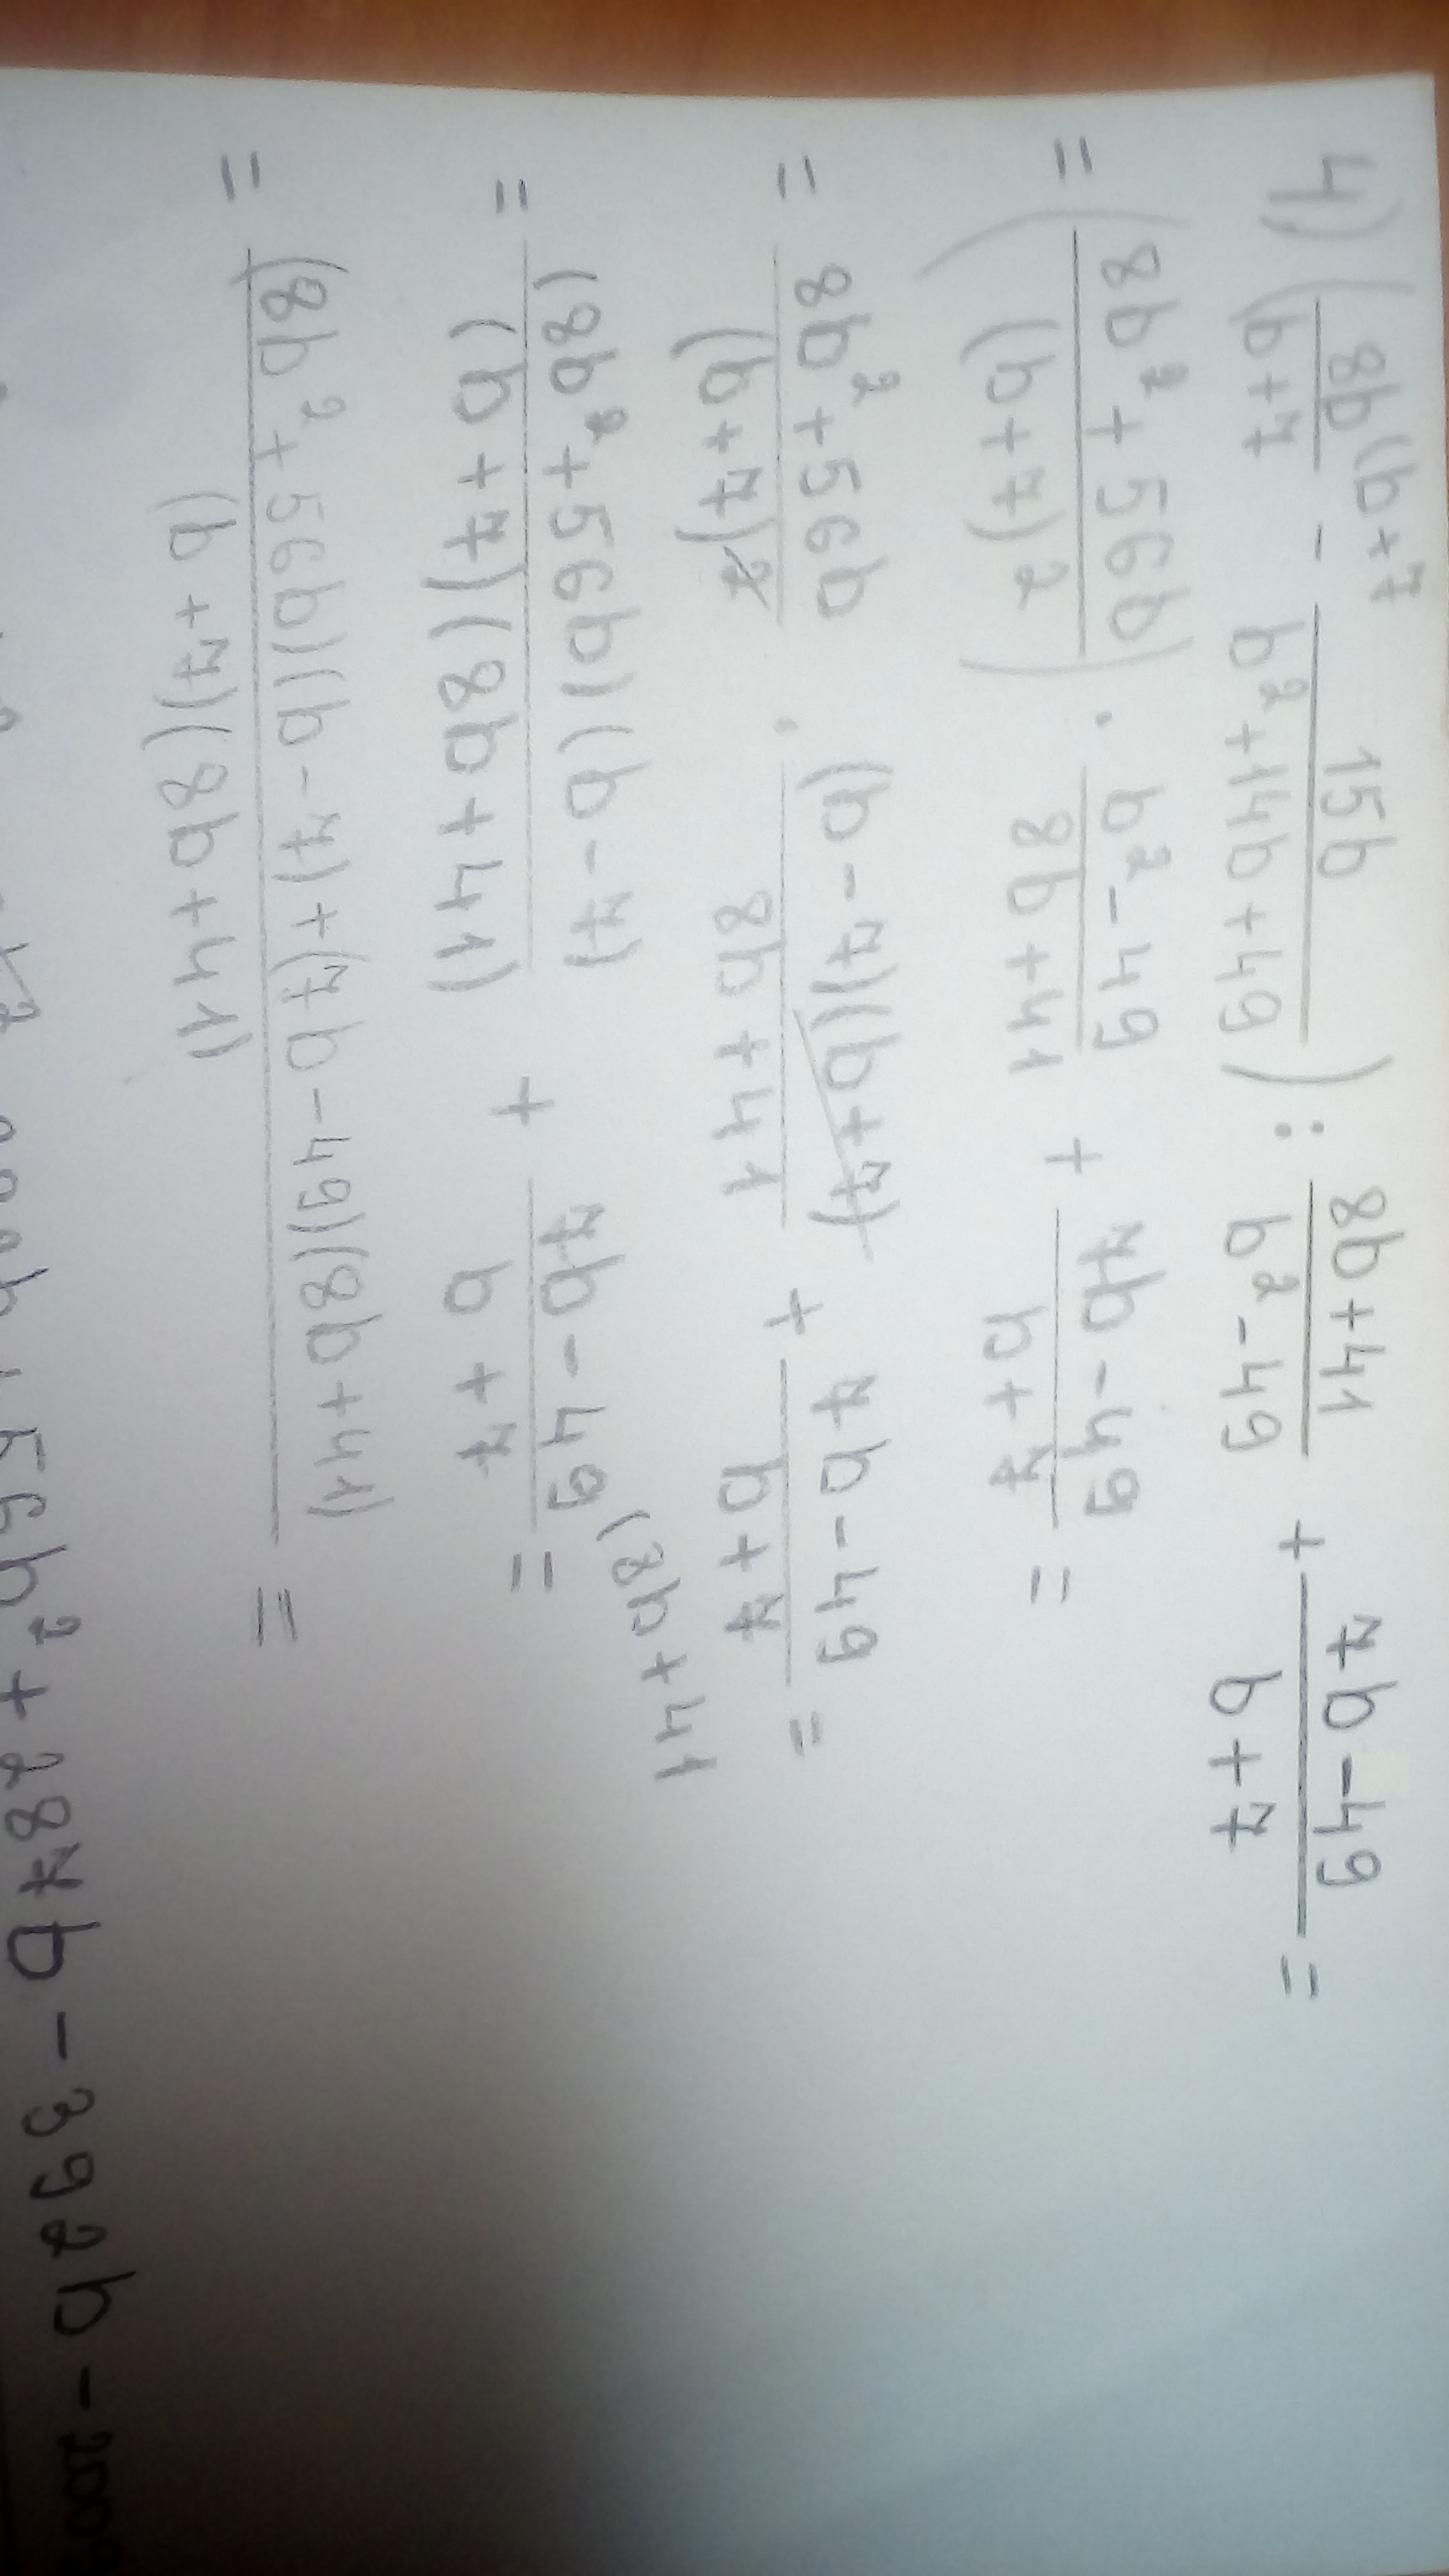 4) (8b/(b+7 - 15b/b²+14b+49) : 8b+41/b²-49 + 7b-49/b+7 =
(b+7
= (8b²+56b/(b+7)²) · b²-49/8b+41 + 7b-49/b+7 =
= 8b²+56b/(b+7)² · (b-7)(b+7)/8b+41 + 7b-49/b+7 =
= (8b²+56b)(b-7)/(b+7)(8b+41) + 7b-49/b+7 =
(8b+41
= (8b²+56b)(b-7)+(7b-49)(8b+41)/(b+7)(8b+41) =
56b²+287b-392b-2009